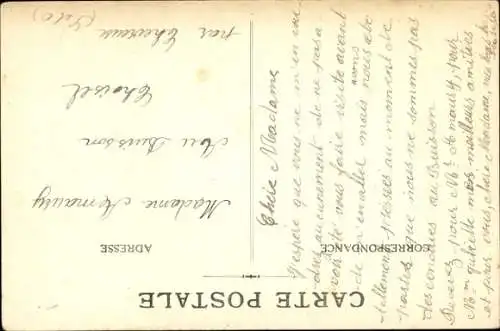 CARTE POSTALE
CORRESPONDANCE
ADRESSE
Chère Madame
J'espère que vous ne m'en vou
drez aucunement de ne pas a
voir été vous faire visite avant
de m'en aller mais nous avons été
tellement pressées au moment de
partir que nous ne sommes pas
descendues au Buisson
Recevez pour Mr Amaury, pour
Mme qu'elle mes meilleurs amitiés
et pour vous chère Madame,
Madame Amaury
Au Buisson
Choisel
par Chevreuse
(S et O)